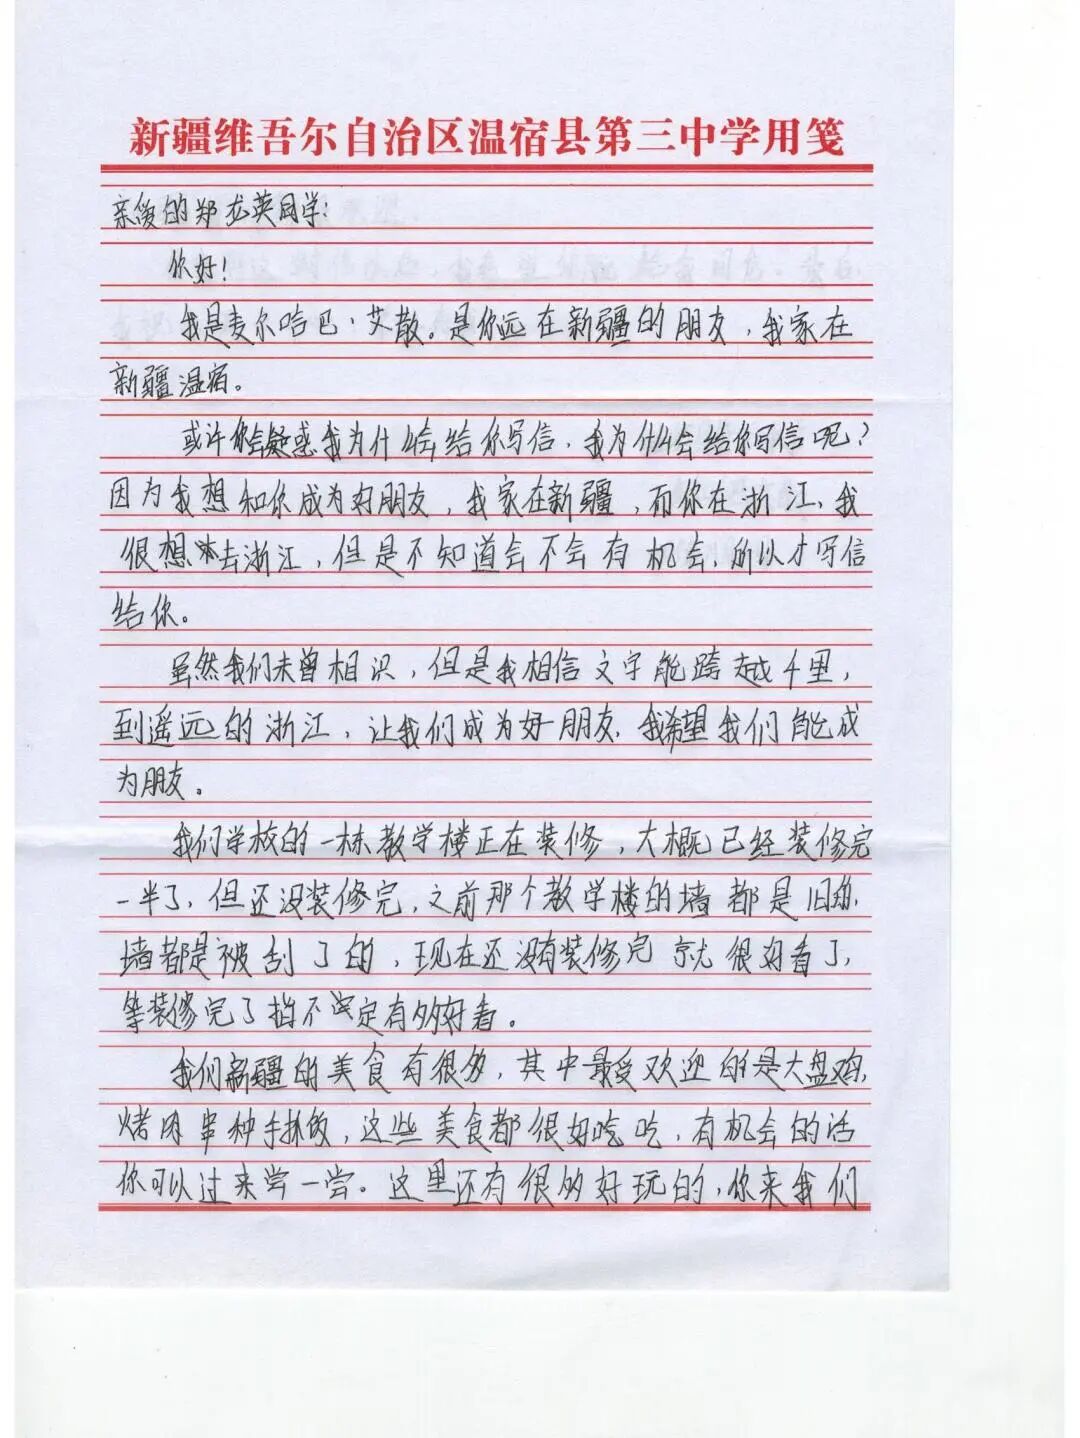 新疆维吾尔自治区温宿县第三中学用笺
亲爱的郑龙英同学:
你好!
我是麦尔哈巴·艾散。是你远在新疆的朋友,我家在
新疆温宿。
或许你会疑惑我为什么会给你写信,我为什么会给你写信呢?
因为我想和你成为好朋友,我家在新疆,而你在浙江,我
很想去浙江,但是不知道会不会有机会,所以才写信
给你。
虽然我们未曾相识,但是我相信文字能跨越千里,
到遥远的浙江,让我们成为好朋友,我希望我们能成
为朋友。
我们学校的一栋教学楼正在装修,大概已经装修完
一半了,但还没装修完,之前那个教学楼的墙都是旧的,
墙都是被刮了的,现在还没有装修完就很好看了,
等装修完了指不定有多好看。
我们新疆的美食有很多,其中最受欢迎的是大盘鸡,
烤肉串和手抓饭,这些美食都很好吃吃,有机会的话
你可以过来尝一尝。这里还有很多好玩的,你来我们